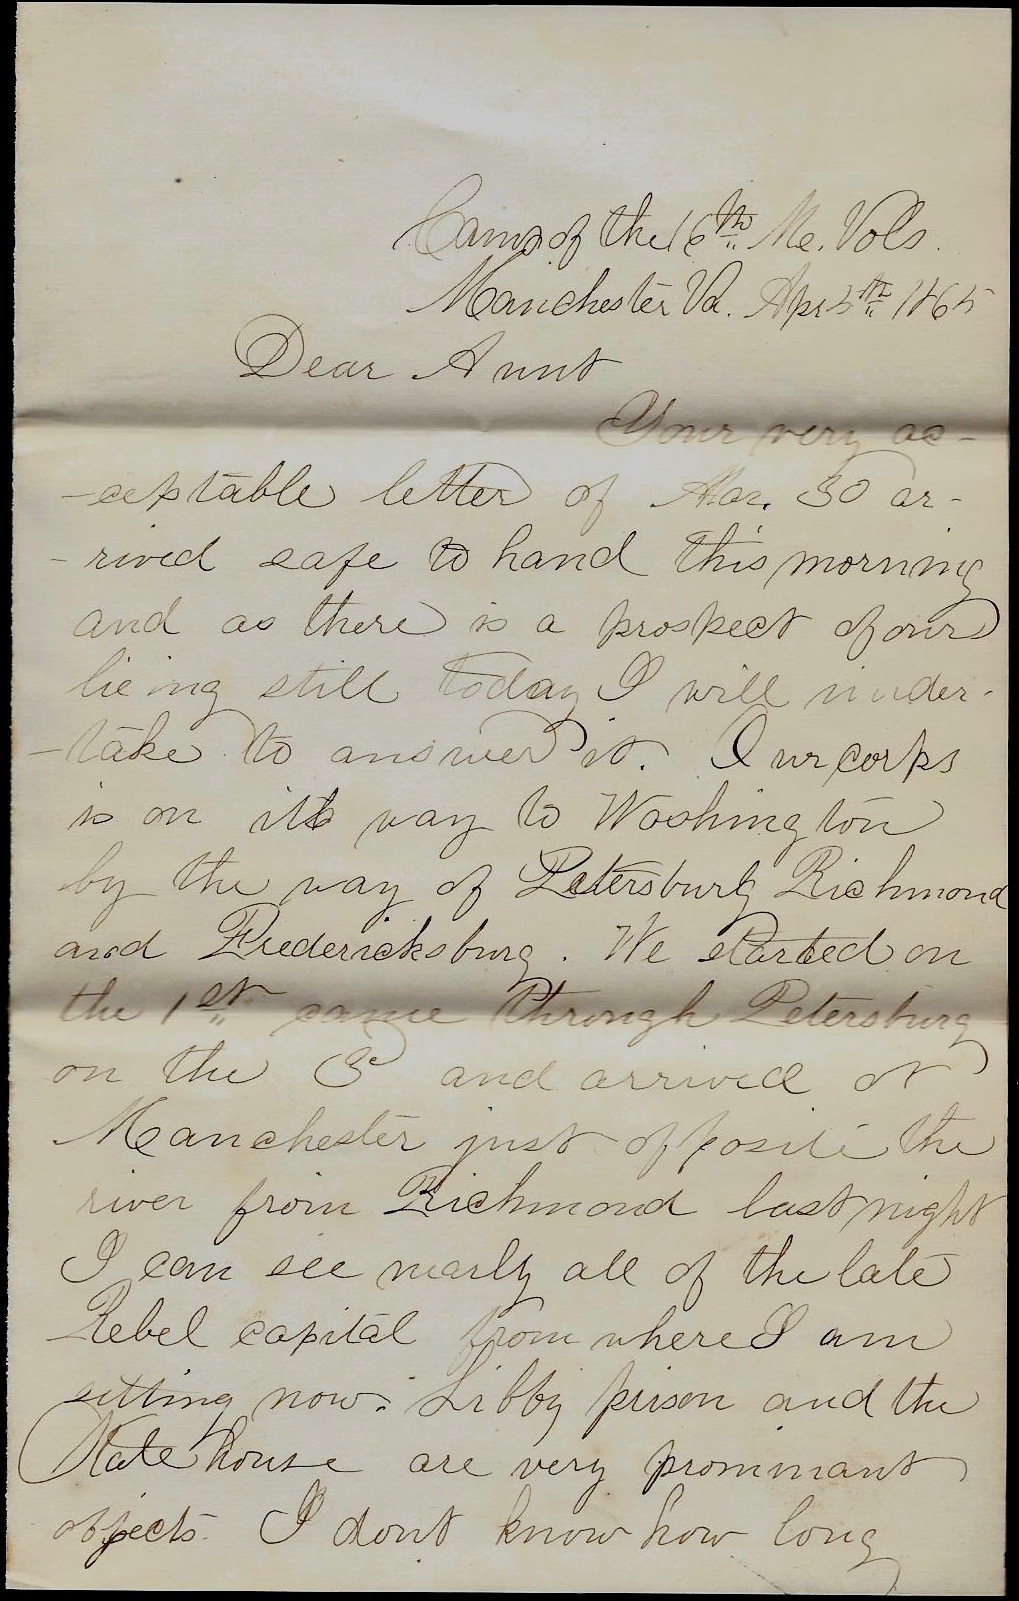 Camp of the 16th Me. Vols.
Manchester Va. Apr 5th 1865
Dear Aunt
Your very ac-
-ceptable letter of Mar. 30 ar-
-rived safe to hand this morning
and as there is a prospect of our
lieing still today I will under-
-take to answer it. Our corps
is on its way to Washington
by the way of Petersburg Richmond
and Fredericksburg. We started on
the 1st came through Petersburg
on the 3d and arrived at
Manchester just opposite the
river from Richmond last night
I can see nearly all of the late
Rebel capital from where I am
sitting now. Libby prison and the
State house are very prominant
objects. I dont know how long